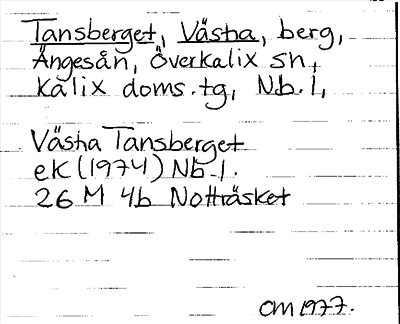 Tansberget, Västra, berg,
Ängesån, Överkalix sn,
Kalix doms.tg, Nb.l,
Västra Tansberget
eK (1974) Nb.l.
26 M 4b Notträsket
OM 1977.